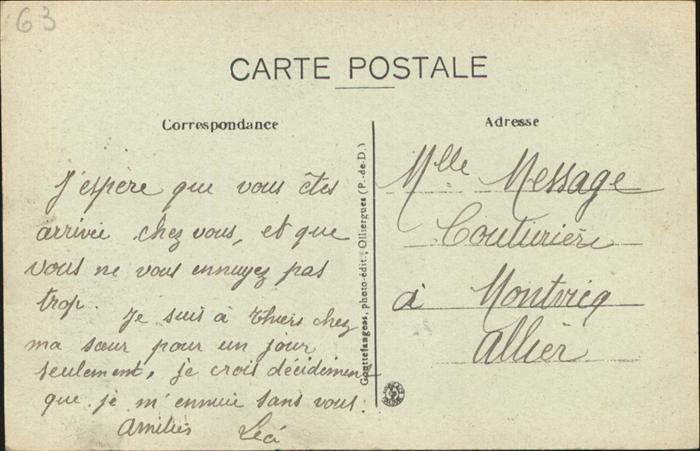 63
CARTE POSTALE
Correspondance
Adresse
J'espère que vous êtes
arrivée chez vous, et que
vous ne vous ennuyez pas
trop.
Je suis à Thiers chez
ma sœur pour un jour
seulement, je crois décidément
que je m'ennuie sans vous.
Amitiés Léa
Gouttefangeas, photo-édit., Olliergues (P.-de-D.)
Mlle Message
Couturière
à Montvicq
Allier